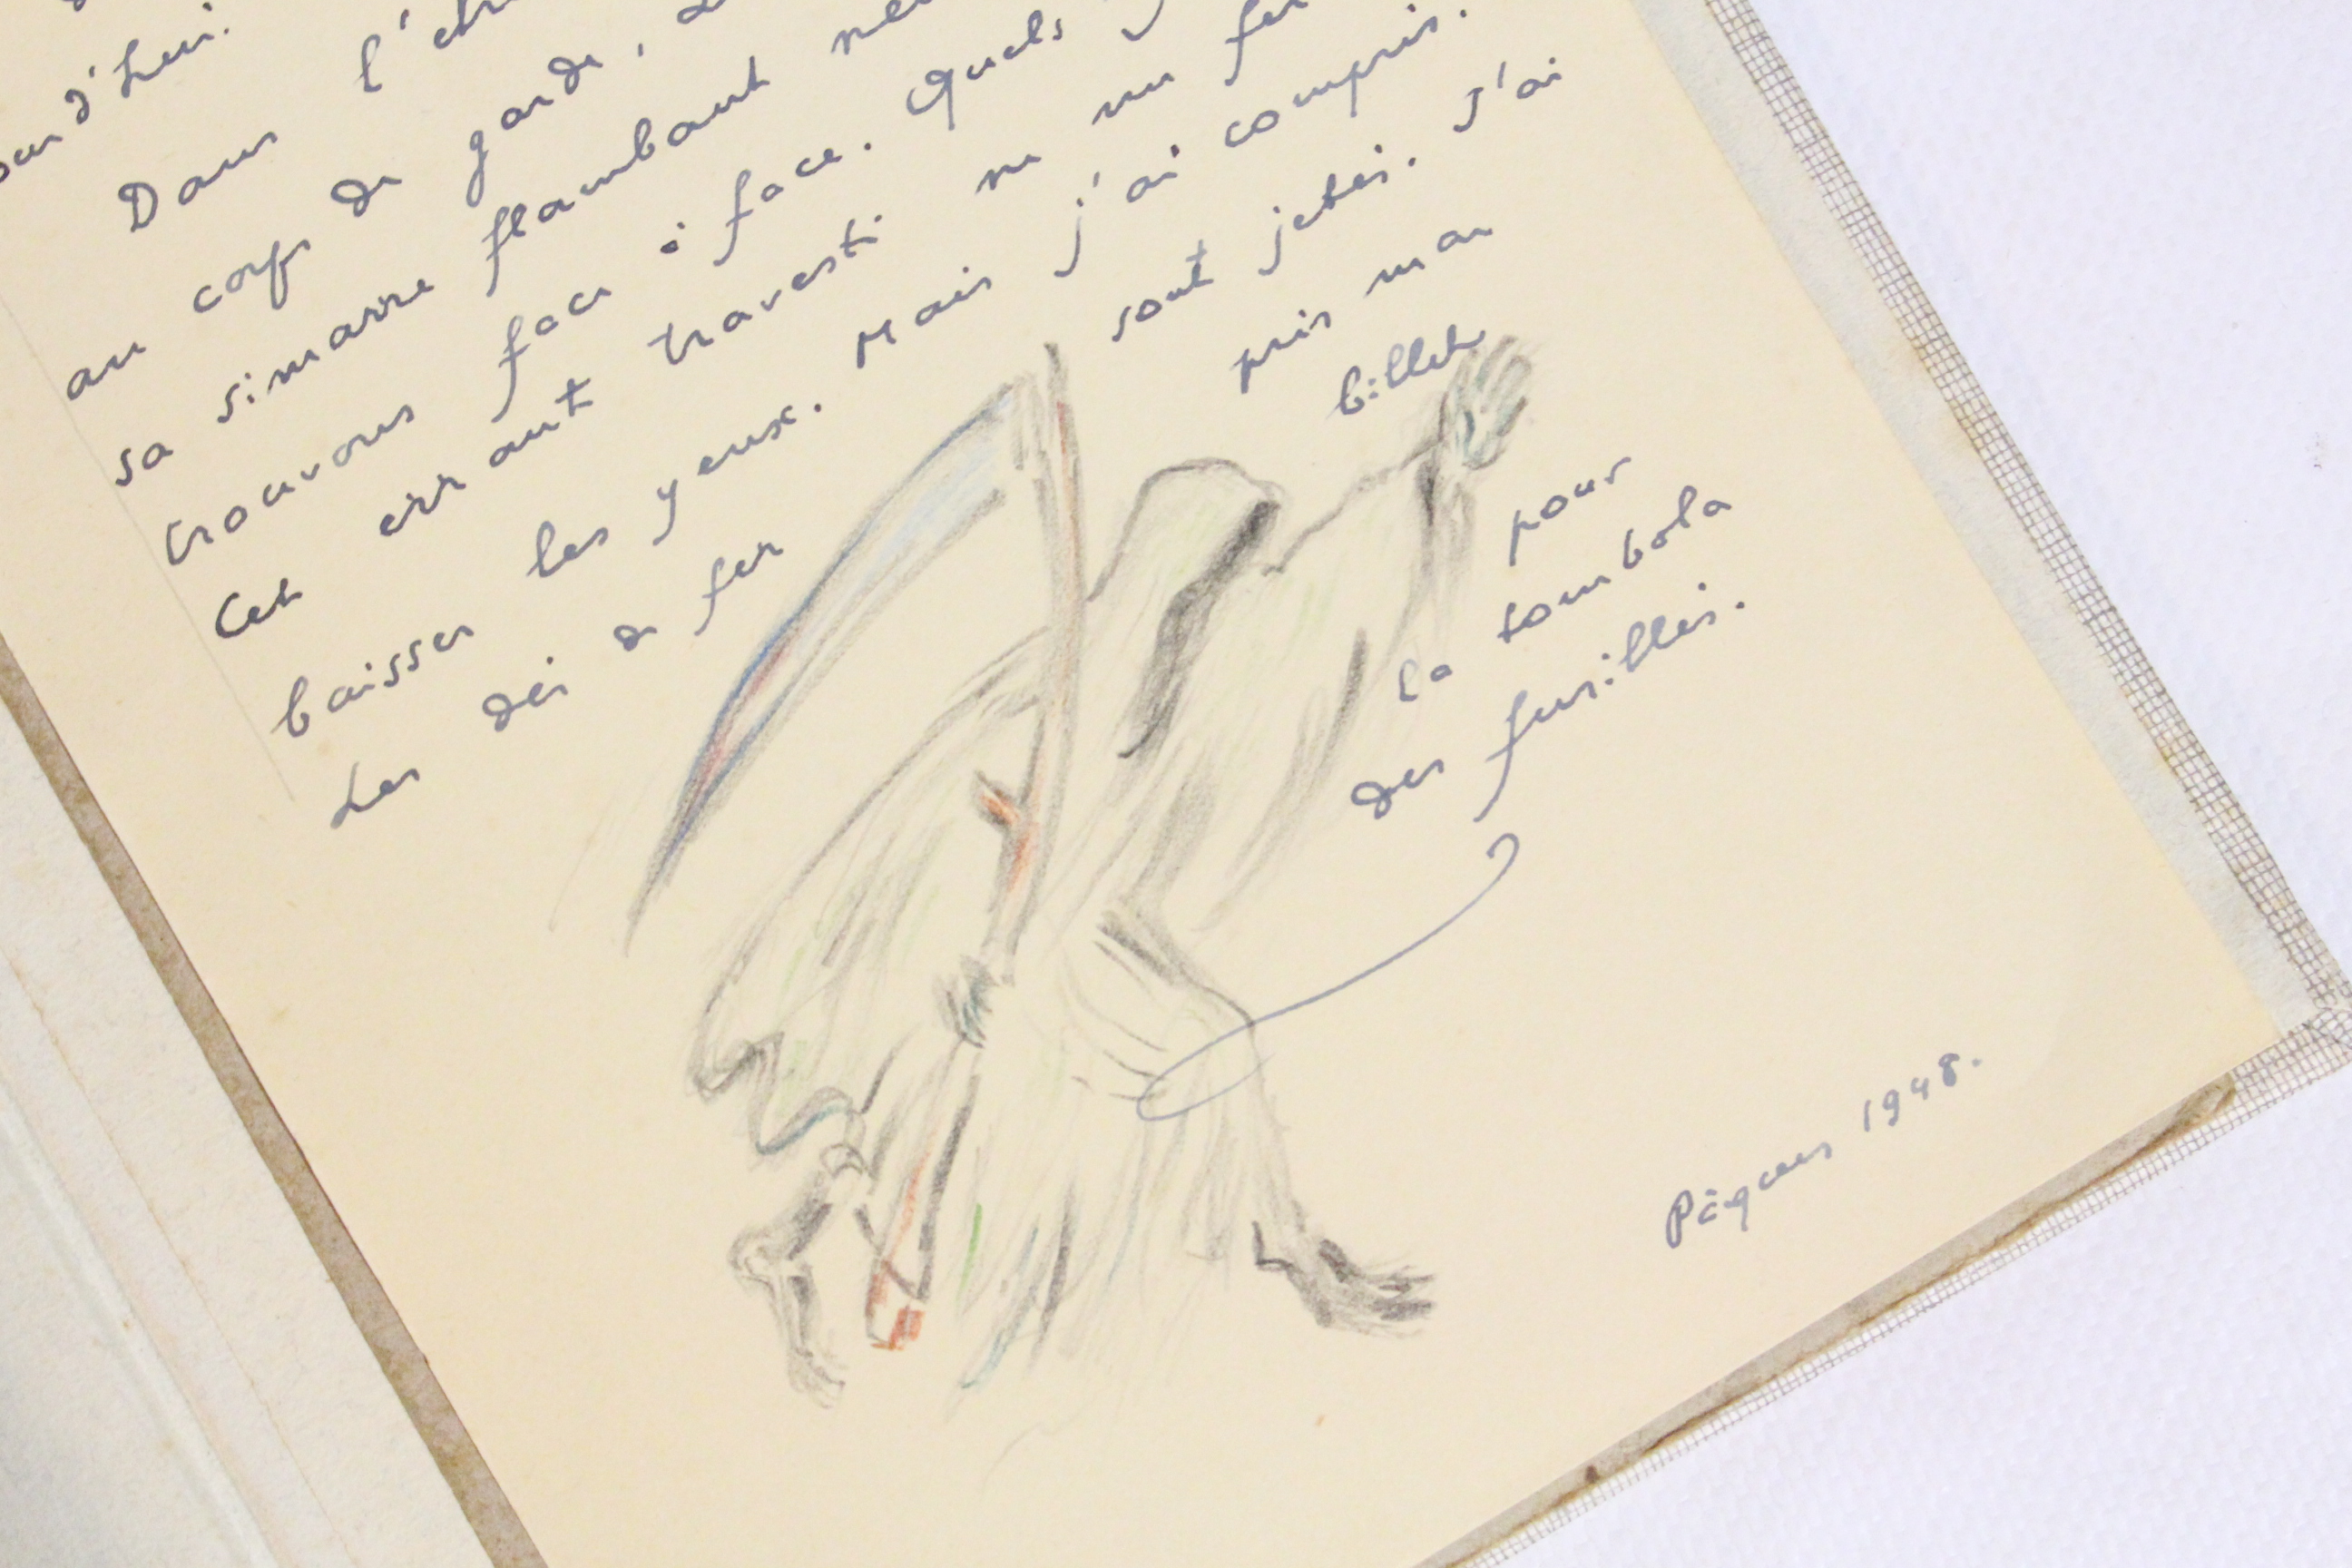 d'hui.
Dans l'
au corps de garde,
sa simarre flambant
trouvons face à face. Quels
Cet errant travesti ne me
baisser les yeux. Mais j'ai compris.
Les dés de fer sont jetés. J'ai
pris mon
billet
pour
la tombola
des fusillés.
Pâques 1948.